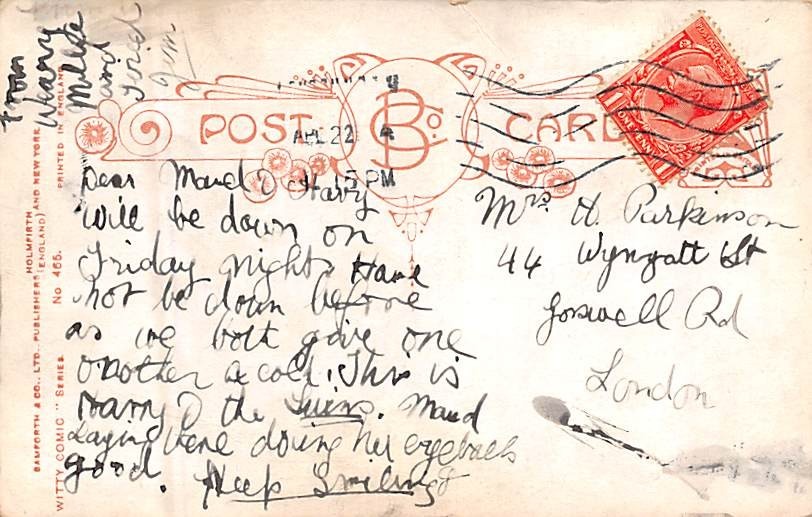 From
Harry
Millie
and
Fried
Jim
POST CARD
B Co.
APL 22
5 PM
ONE PENNY
Dear Maud & Harry
will be down on
Friday night. Have
not be down before
as we both give one
another a cold. This is
Harry & the Twins. Maud
Laying there doing her eyeballs
good. Keep Smiling
Mrs. H. Parkinson
44 Wynyatt St
Goswell Rd
London
BAMFORTH & CO., LTD., PUBLISHERS
HOLMFIRTH (ENGLAND) AND NEW YORK.
WITTY COMIC " SERIES. No 465. PRINTED IN ENGLAND